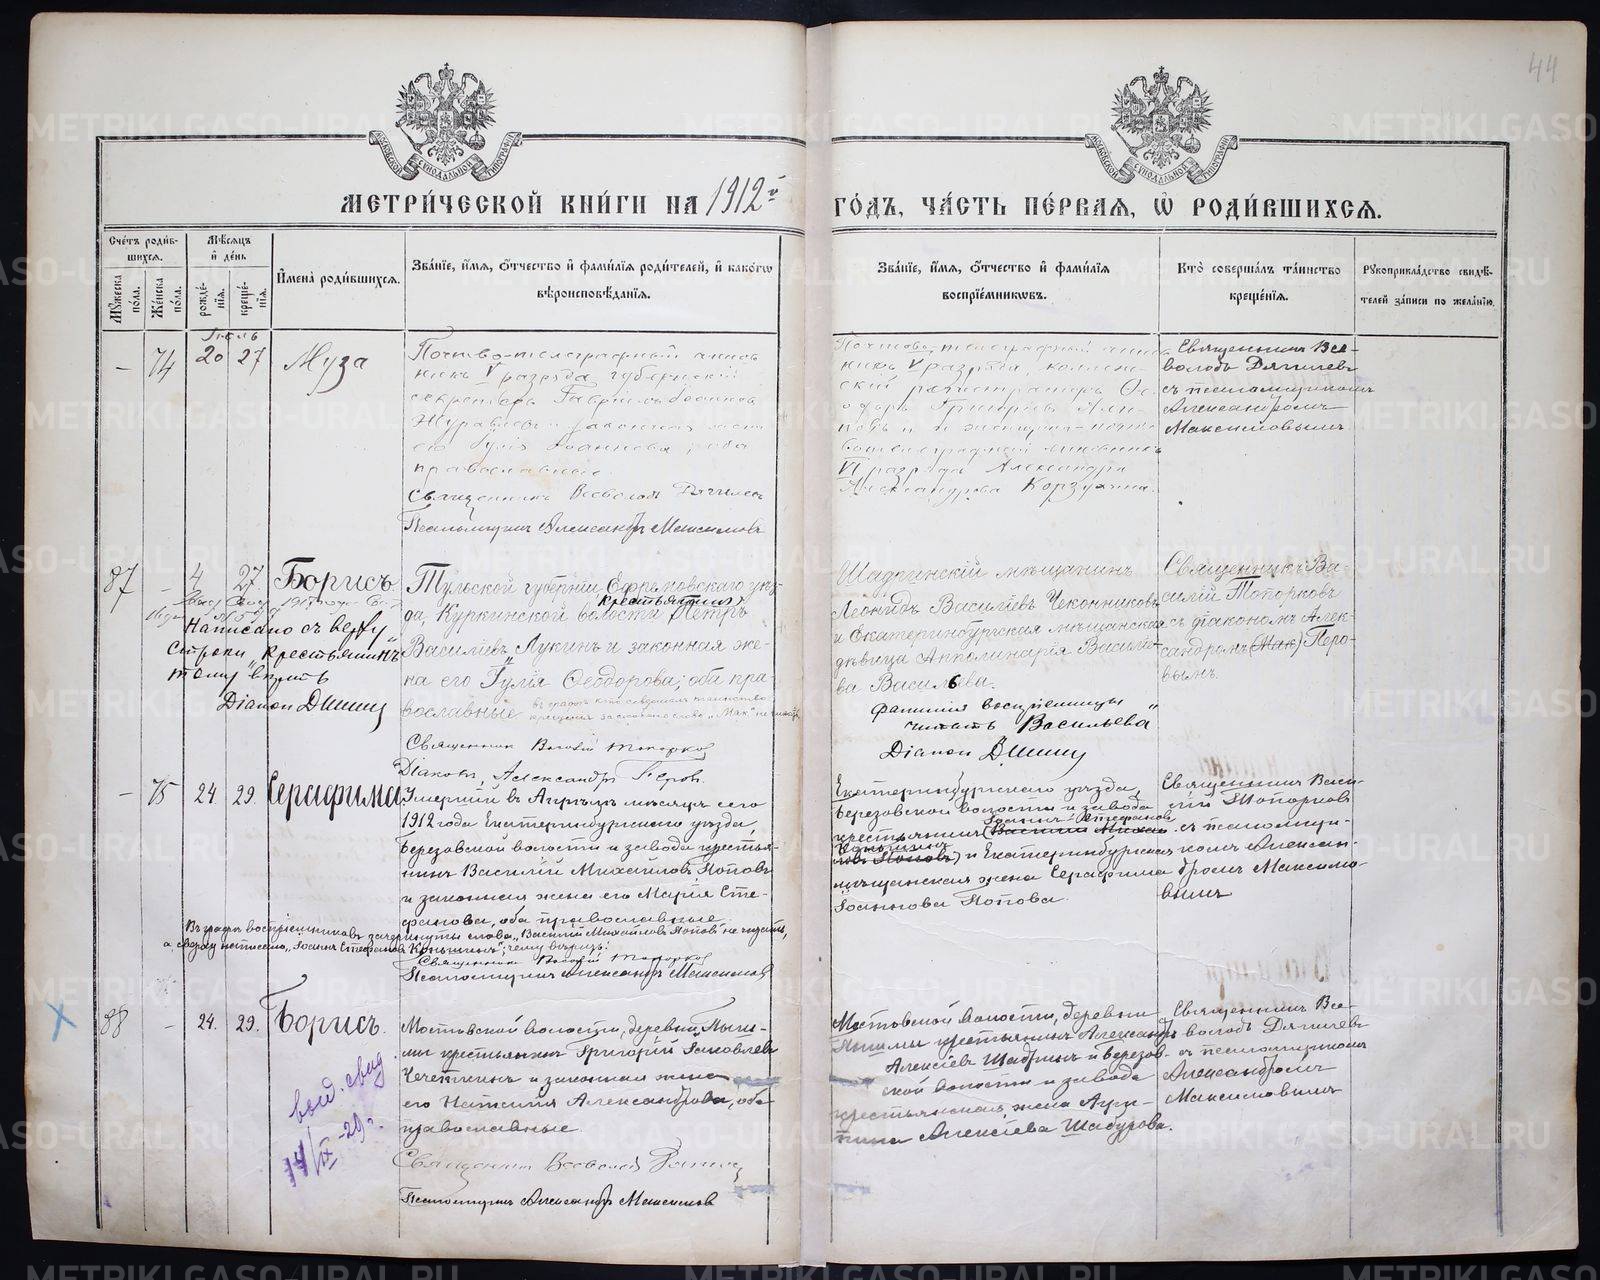 44
МОСКОВСКОЙ СѴНОДАЛЬНОЙ ТИПОГРАФІИ
МОСКОВСКОЙ СѴНОДАЛЬНОЙ ТИПОГРАФІИ
МЕТРИ́ЧЕСКОЙ КНИ́ГИ НА 1912й ГО́ДЪ, ЧА́СТЬ ПЕ́РВАЯ, Ѡ҆ РОДИ́ВШИХСЯ.
Сче́тъ роди́в-
шихся.
Мꙋ́жеска по́ла.
Же́нска по́ла.
Мѣ́сяцъ
и҆ де́нь
рожде́-
нїя.
креще́-
нїя.
И҆мена̀ роди́вшихся.
Зва́нїе, и҆́мя, ѻ҆́тчество и҆ фами́лїя роди́телей, и҆ како́гѡ
вѣроисповѣ́данїя.
Зва́нїе, и҆́мя, ѻ҆́тчество и҆ фами́лїя
восприе́мниковъ.
Кто̀ соверша́лъ та́инство
креще́нїя.
Рꙋкоприкла́дство свидѣ́-
телей за́писи по жела́нїю.
Іюль
- 74 20 27 Муза
Почтово-телеграфный чинов
никъ V разряда, губернскій
секретарь Гавріилъ Іоанновъ
Журавлевъ и законная жена
его Юлія Іоаннова; оба
православные.
Священникъ Всеволодъ Дягилевъ
Псаломщикъ Александръ Максимовъ
никъ V разряда, коллеж-
скій регистраторъ Ѳе-
одоръ Григорьевъ
вотелеграфный чиновникъ
VI разряда Александра
Александрова
Священникъ Все-
володъ Дягилевъ
съ псаломщикомъ
Александромъ
Максимовымъ
87 - 4 27 Борисъ.
Тульской губерніи Ефремовскаго уѣз-
крестьянинъ
да, Куркинской волости Петръ
Васильевъ Лукинъ и законная же-
на его Юлія Ѳеодорова; оба пра-
вославные
въ графѣ кто совершалъ таинство
крещенія слово „Мак“ не читать
Написано съ верху
строки „крестьянинъ“
тому вѣрить
Діаконъ
Священникъ Василій Топорковъ
Діаконъ, Александръ Перовъ.
Шадринскій мѣщанинъ
Леонидъ Васильевъ Чеконниковъ
и Екатеринбургская мѣщанская
дѣвица Апполинарія Василье-
ва Васильева.
фамилія воспріемницы
читать Васильева“
Діаконъ
Священникъ Ва-
силій Топорковъ
съ діакономъ Алек-
сандромъ (Мак) Перо-
вымъ.
- 75 24. 29. Серафима
Умершій въ Апрѣлѣ мѣсяцѣ сего
1912 года Екатеринбургскаго уѣзда,
Березовской волости и завода крестья-
нинъ Василій Михайловъ Поповъ
и законная жена его Марія Сте-
фанова, оба православные.
Въ графѣ воспріемниковъ зачеркнуты слова „Василій Михайловъ Поповъ“ не читать,
а сверху написано „Іоаннъ Стефановъ Конькинъ“; чему вѣрить:
Священникъ Василій Топорковъ
Псаломщикъ Александръ Максимовъ
Екатеринбургскаго уѣзда,
Березовской волости и завода
Іоаннъ Стефановъ
крестьянинъ (Василій Михай
ловъ Поповъ) и Екатеринбургская
мѣщанская жена Серафима
Іоаннова Попова.
Священникъ Васи-
лій Топорковъ
съ псаломщи-
комъ Алексан-
дромъ Максимо-
вымъ
88 - 24. 29. Борисъ.
Мостовской волости, деревни Пыш-
мы крестьянинъ Григорій Іаковлевъ
Чечеткинъ и законная жена
его Наталія Александрова, оба
православные.
Священникъ Всеволодъ Дягилевъ
Псаломщикъ Александръ Максимовъ
Мостовской волости, деревни
Пышмы крестьянинъ Александръ
Алексіевъ Шабринъ и Березов-
ской волости и завода
крестьянская жена Агри-
пина Алексіева Шабурова.
Священникъ Все-
володъ Дягилевъ
съ псаломщикомъ
Александромъ
Максимовымъ
выд. свид.
14/IX-29г.
METRIKI.GASO-URAL.RU